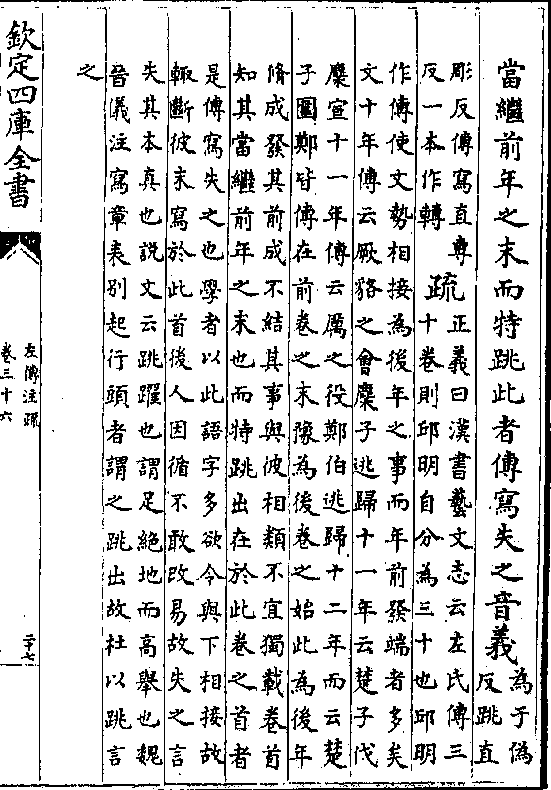 當繼前年之末而特跳此者傳寫失之音義為于偽
反跳直
彫反傳寫直專
反一本作轉
疏正義曰漢書藝文志云左氏傳三
十卷則邱明自分為三十也邱明
作傳使文勢相接為後年之事而年前發端者多矣
文十年傳云厥貉之會麇子逃歸十一年云楚子伐
麇宣十一年傳云厲之役鄭伯逃歸十二年而云楚
子圍鄭皆傳在前卷之末豫為後卷之始此為後年
脩成發其前成不結其事與彼相類不宜獨載卷首
知其當繼前年之末也而特跳出在於此卷之首者
是傳寫失之也學者以此語字多欲令與下相接故
輒斷彼末寫於此首後人因循不敢改易故失之言
失其本真也說文云跳躍也謂足絕地而高舉也魏
晉儀注寫章表別起行頭者謂之跳出故杜以跳言
之
欽定四庫全書
左傳注疏
卷三十六
二十七